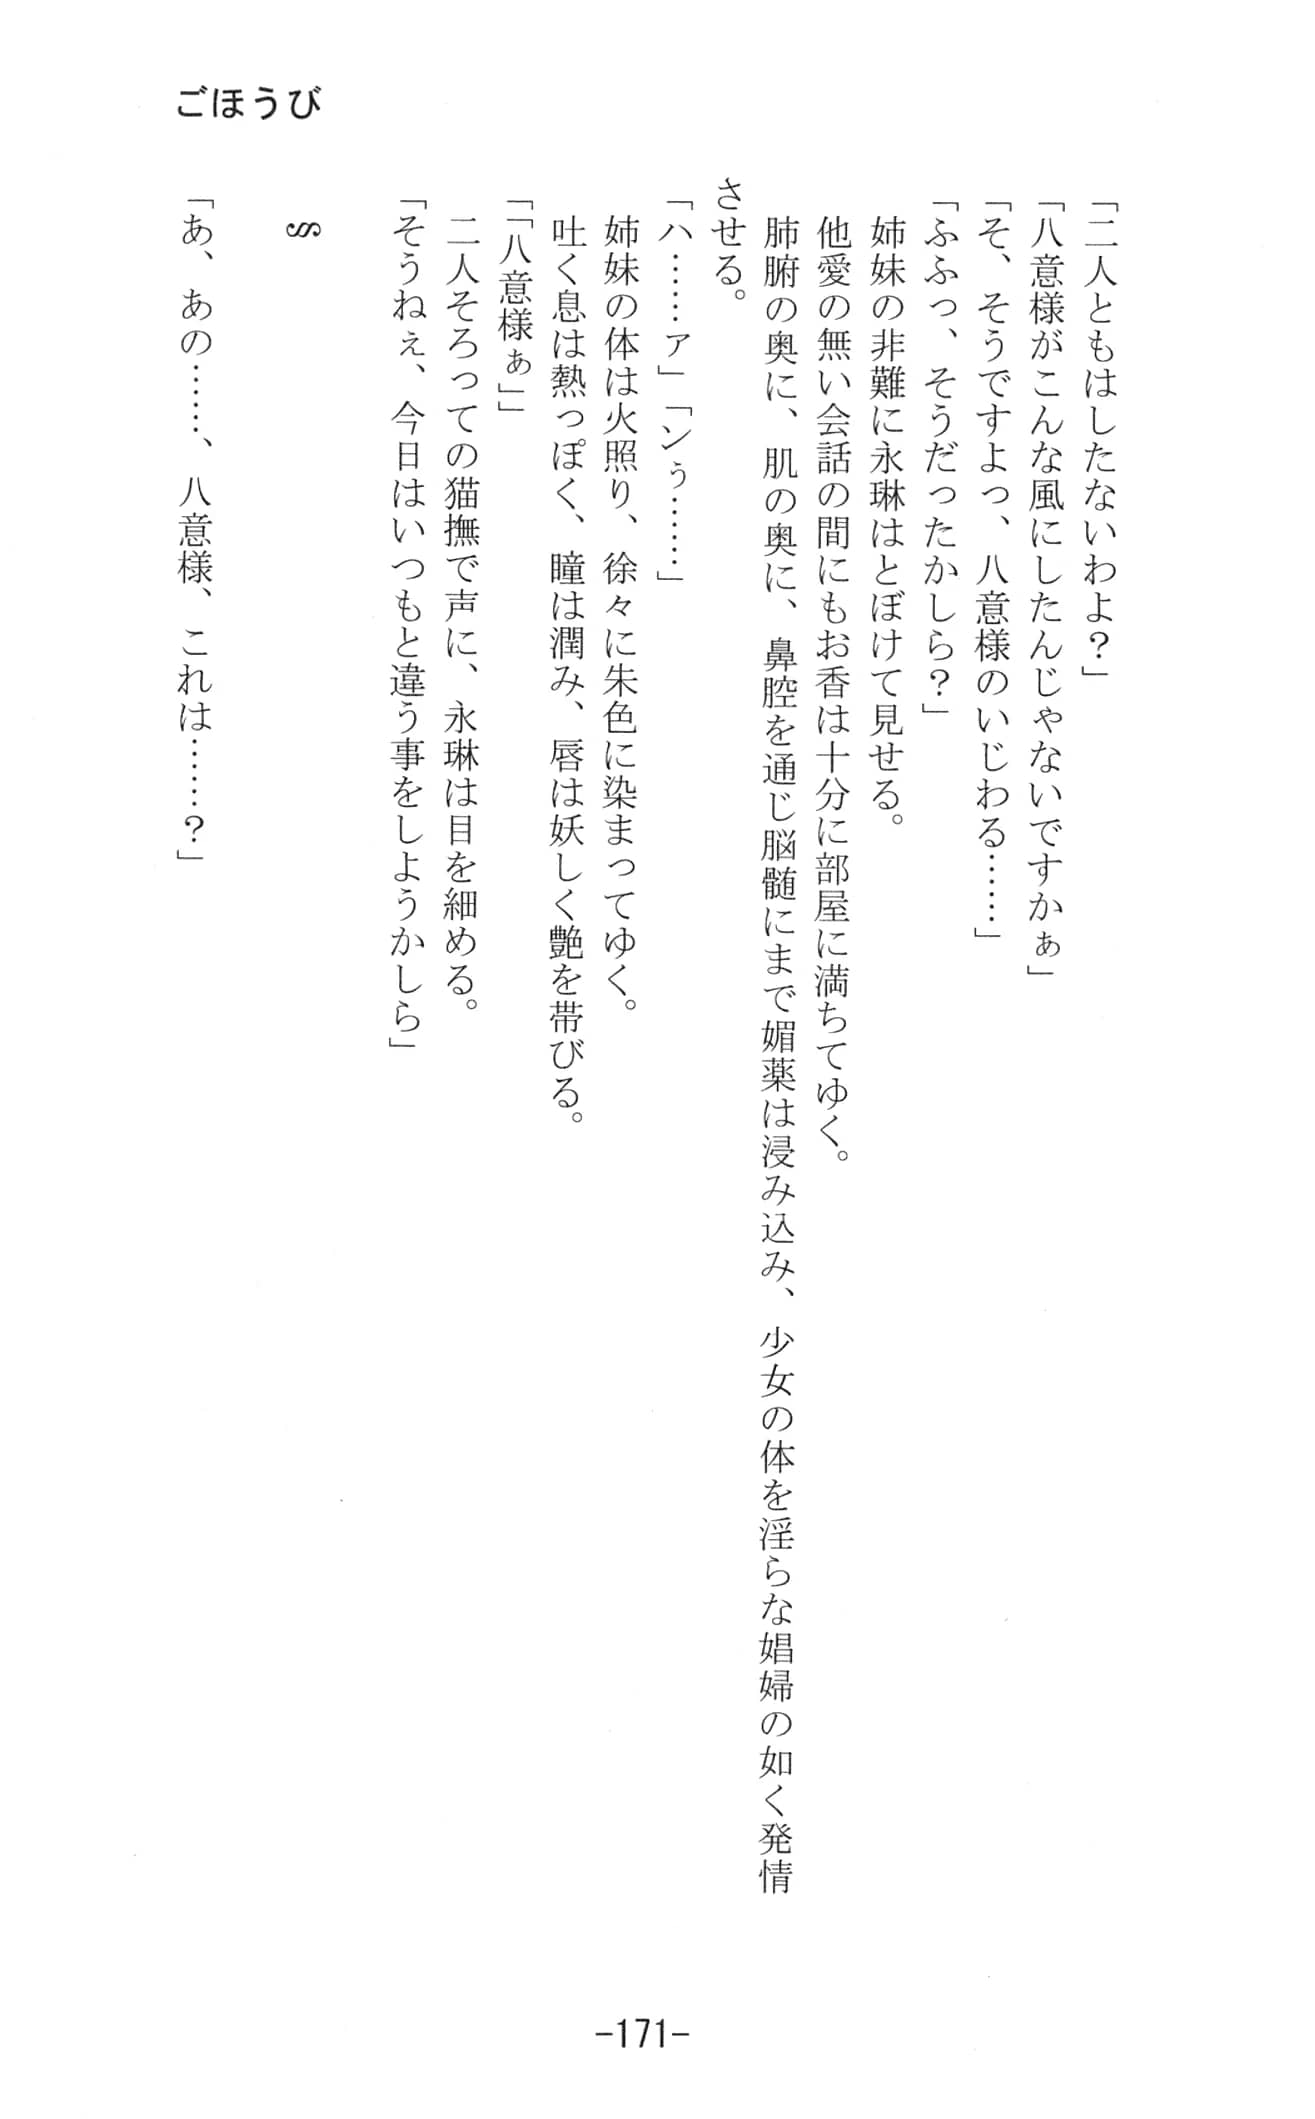 ごほうび
「二人ともはしたないわよ？」
「八意様がこんな風にしたんじゃないですかぁ」
「そ、そうですよっ、八意様のいじわる……」
「ふふっ、そうだったかしら？」
姉妹の非難に永琳はとぼけて見せる。
他愛の無い会話の間にもお香は十分に部屋に満ちてゆく。
肺腑の奥に、肌の奥に、鼻腔を通じ脳髄にまで媚薬は浸み込み、少女の体を淫らな娼婦の如く発情
させる。
「ハ……ァ」「ンぅ……」
姉妹の体は火照り、徐々に朱色に染まってゆく。
吐く息は熱っぽく、瞳は潤み、唇は妖しく艶を帯びる。
「「八意様ぁ」」
二人そろっての猫撫で声に、永琳は目を細める。
「そうねぇ、今日はいつもと違う事をしようかしら」
§
「あ、あの……、八意様、これは……？」
-171-